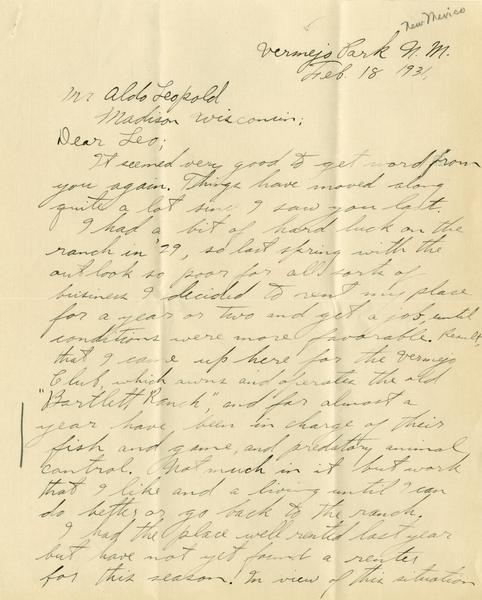 New Mexico
Vermejo Park N. M.
Feb. 18 1931,
Mr Aldo Leopold
Madison Wisconsin;
Dear Leo;
It seemed very good to get word from
you again. Things have moved along
quite a lot since I saw you last.
I had a bit of hard luck on the
ranch in '29, so last spring with the
outlook so poor for all sorts of
business I decided to rent my place
for a year or two and get a job until
conditions were more favorable. Result,
that I came up here for the Vermejo
Club, which owns and operates the old
"Bartlett Ranch", and for almost a
year have been in charge of their
fish and game, and predatory animal
control. Not much in it but work
that I like and a living until I can
do better or go back to the ranch.
I had the place well rented last year
but have not yet found a renter
for this season. In view of this situation